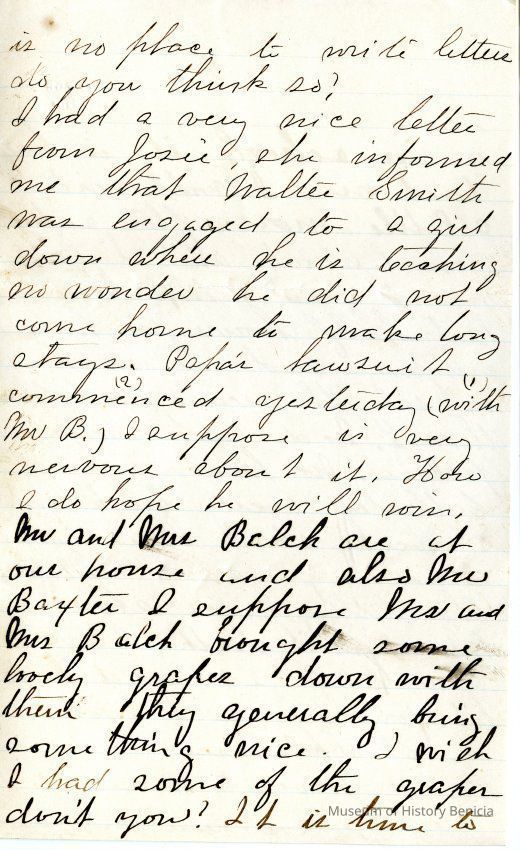 is no place to write letters
do you think so?
I had a very nice letter
from Josie, she informed
me that Walter Smith
was engaged to a girl
down where he is teaching
no wonder he did not
come home to make long
stays. Papa's lawsuit
(2) (1)
commenced yesterday (with
Mr B.) I suppose is very
nervous about it. How
I do hope he will win.
Mr and Mrs Balch are at
our house and also Mr
Baxter I suppose Mr and
Mrs Balch brought some
lovely grapes down with
them they generally bring
something nice. I wish
I had some of the grapes
don't you? It is time to
Museum of History Benicia